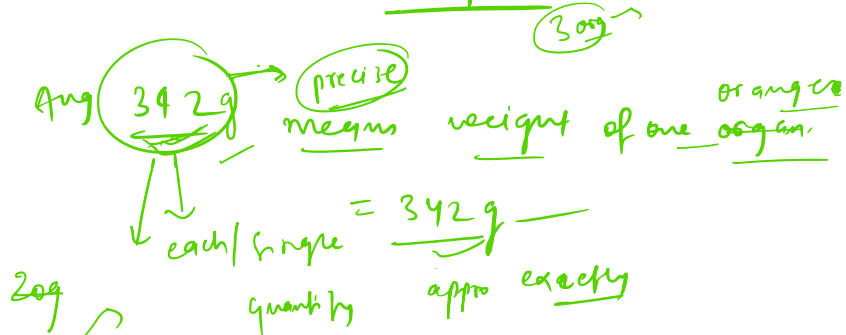 3 org
Avg 342g precise
means weight of one organ. orange
each/single = 342g
20g quantity appro exactly